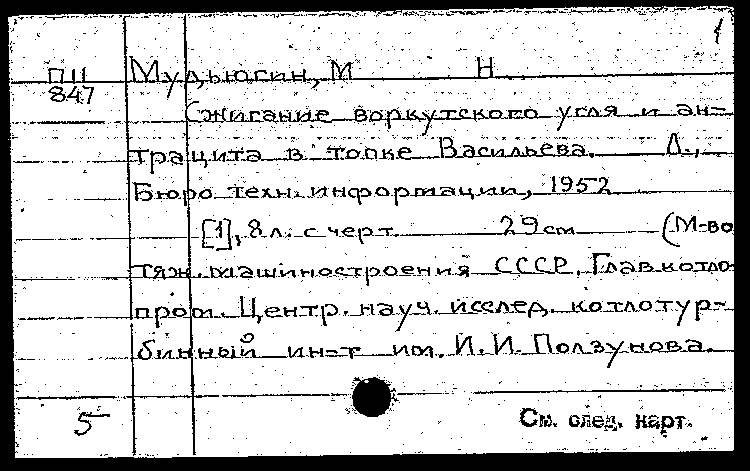 1
П11
847
Мудьюгин, М Н
Сжигание воркутского угля и ан-
трацита в топке Васильева. Л.,
Бюро техн. информации, 1952
[1], 8 л. с черт. 29 см (М-во
тяж. машиностроения СССР. Главкотло-
пром. Центр. науч. исслед. котлотур-
бинный ин-т им. И. И. Ползунова.
5
См. след. карт.